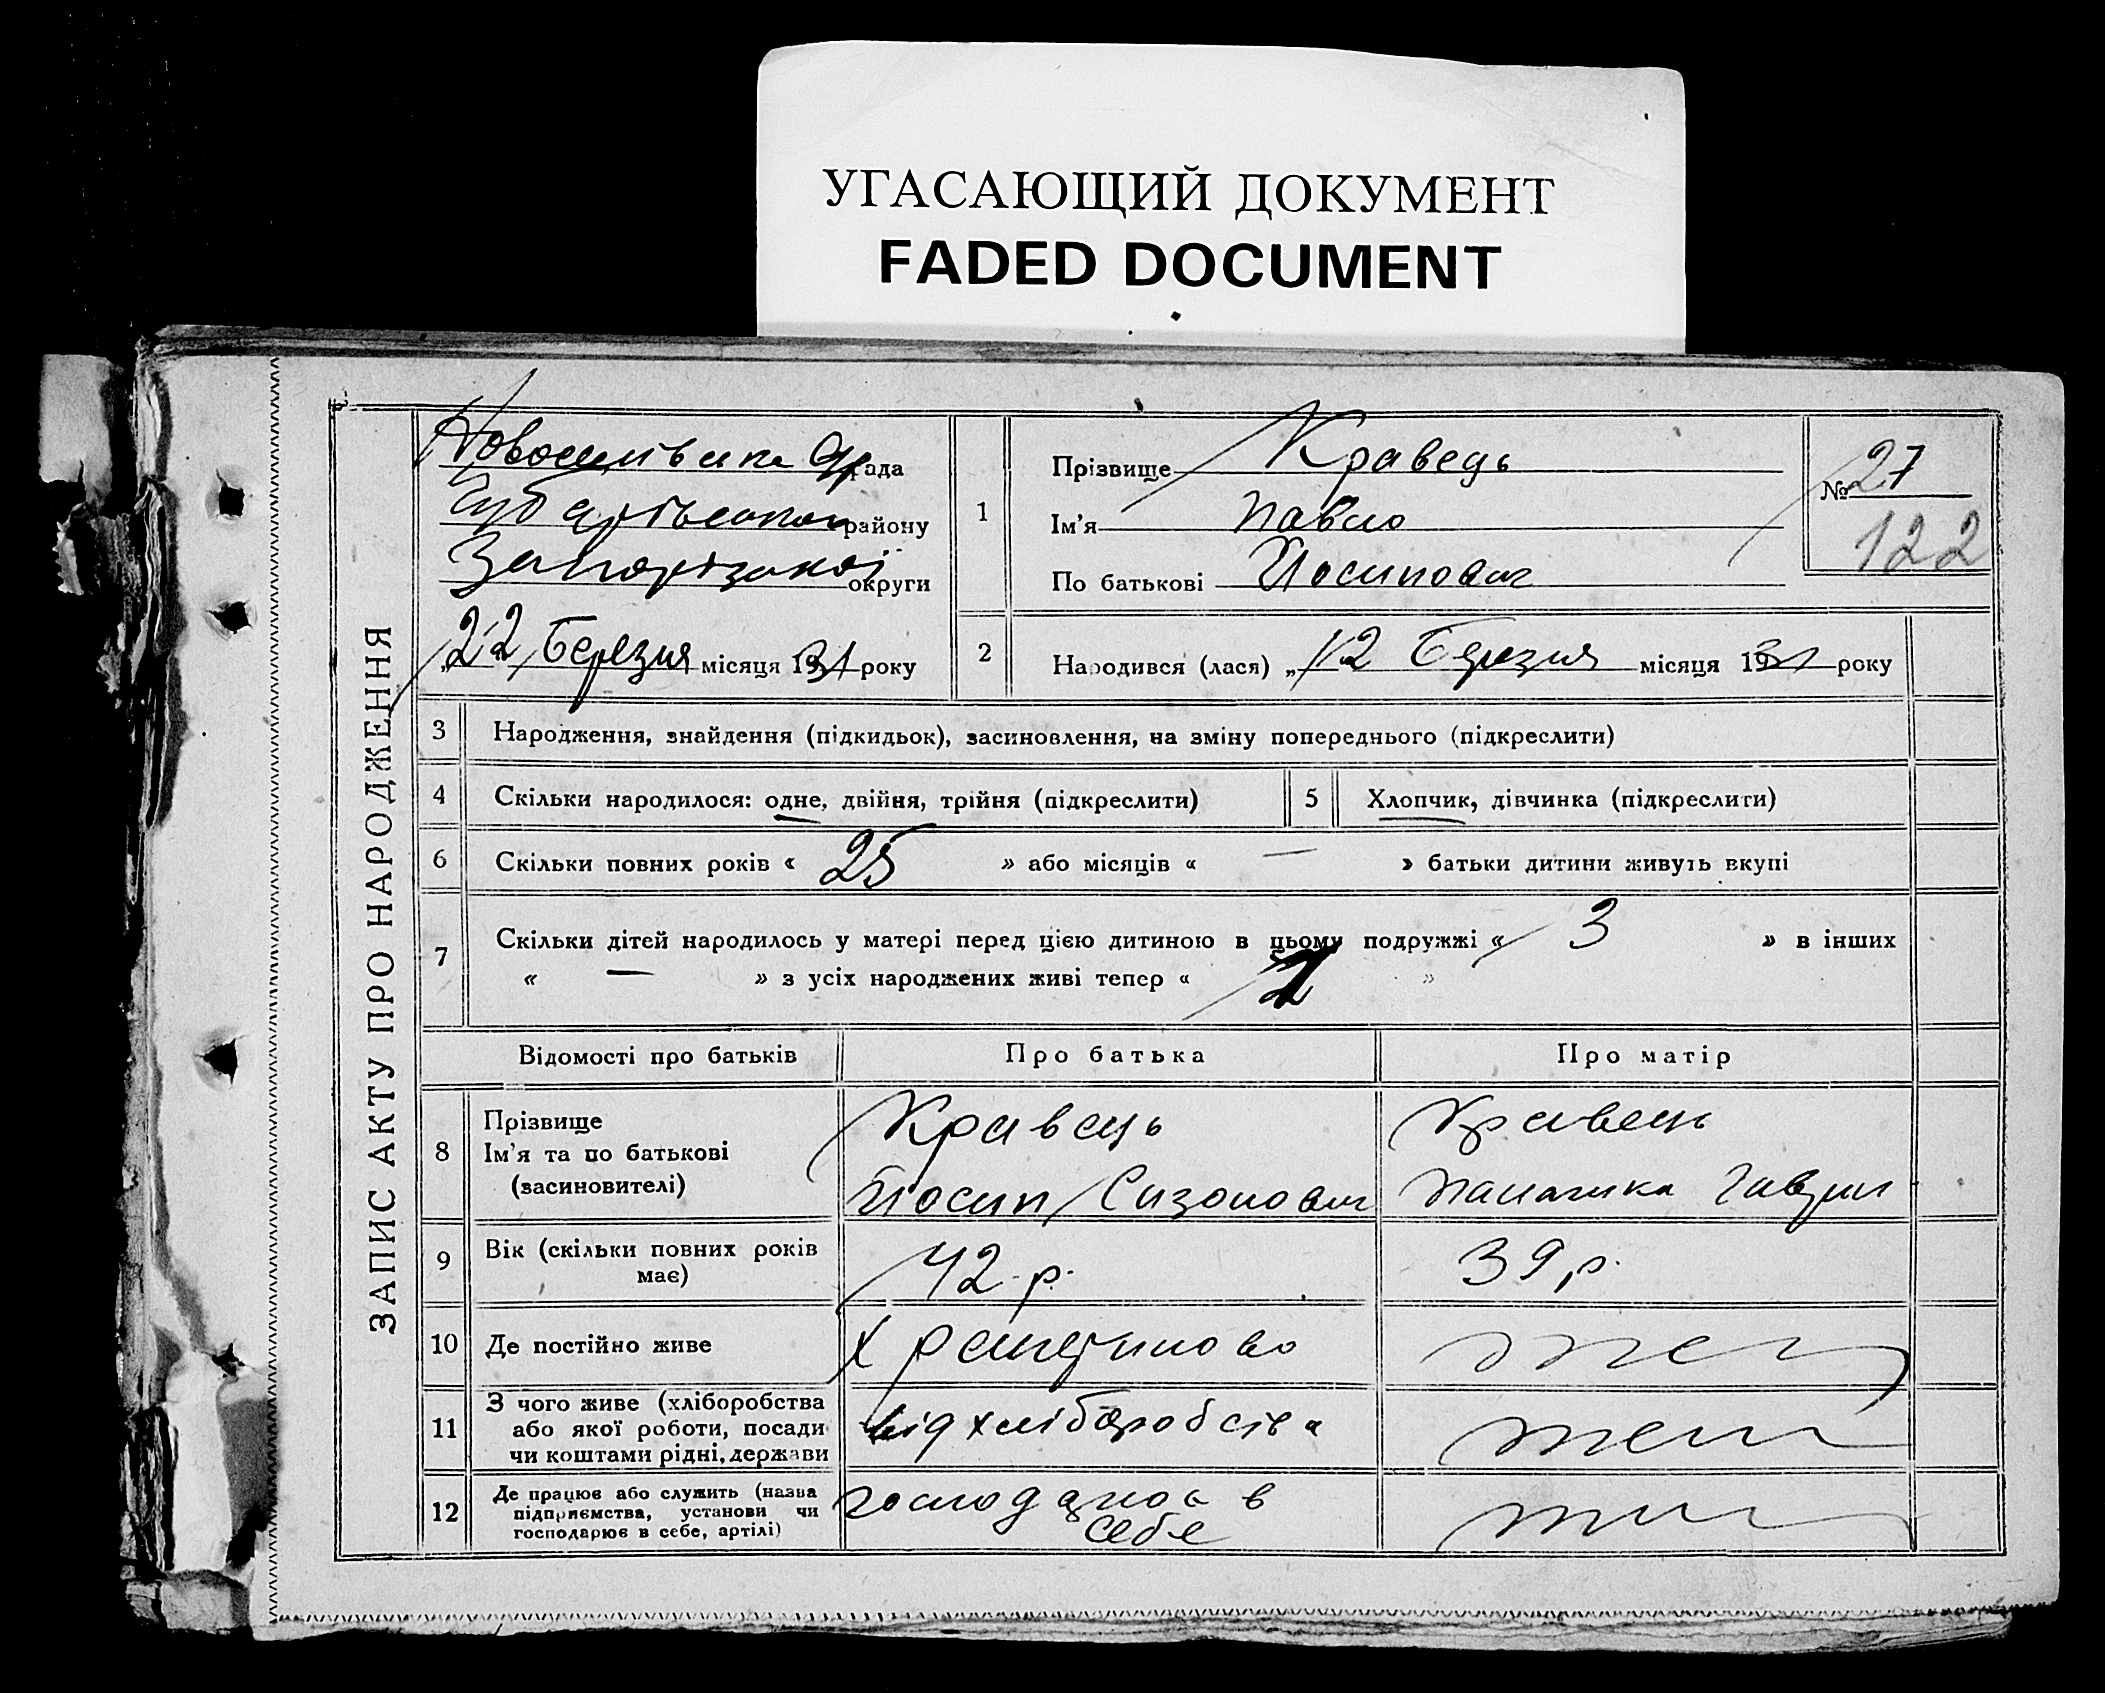 УГАСАЮЩИЙ ДОКУМЕНТ
FADED DOCUMENT
ЗАПИС АКТУ ПРО НАРОДЖЕННЯ
рада
району
Запорізької округи
„22„ Березня місяця 1931 року
1
Прізвище Кравець
Ім'я Павло
По батькові Йосипович
№ 27
122
2
Народився (лася) „12 Березня місяця 1931 року
3 Народження, знайдення (підкидьок), засиновлення, на зміну попереднього (підкреслити)
4 Скільки народилося: одне, двійня, трійня (підкреслити)
5 Хлопчик, дівчинка (підкреслити)
6 Скільки повних років « 25 » або місяців « — » батьки дитини живуть вкупі
7 Скільки дітей народилось у матері перед цією дитиною в цьому подружжі « 3 » в інших
« — » з усіх народжених живі тепер « 2 »
Відомості про батьків
Про батька
Про матір
8
Прізвище
Ім'я та по батькові
(засиновителі)
Кравець
Йосип Сизонович
Кравець
Гаврил
9
Вік (скільки повних років
має)
42 р.
39 р.
10 Де постійно живе
Х
11
З чого живе (хліборобства
або якої роботи, посади
чи коштами рідні, держави
від хліборобства
теж
12
Де працює або служить (назва
підприємства, установи чи
господарює в себе, артілі)
в
себе